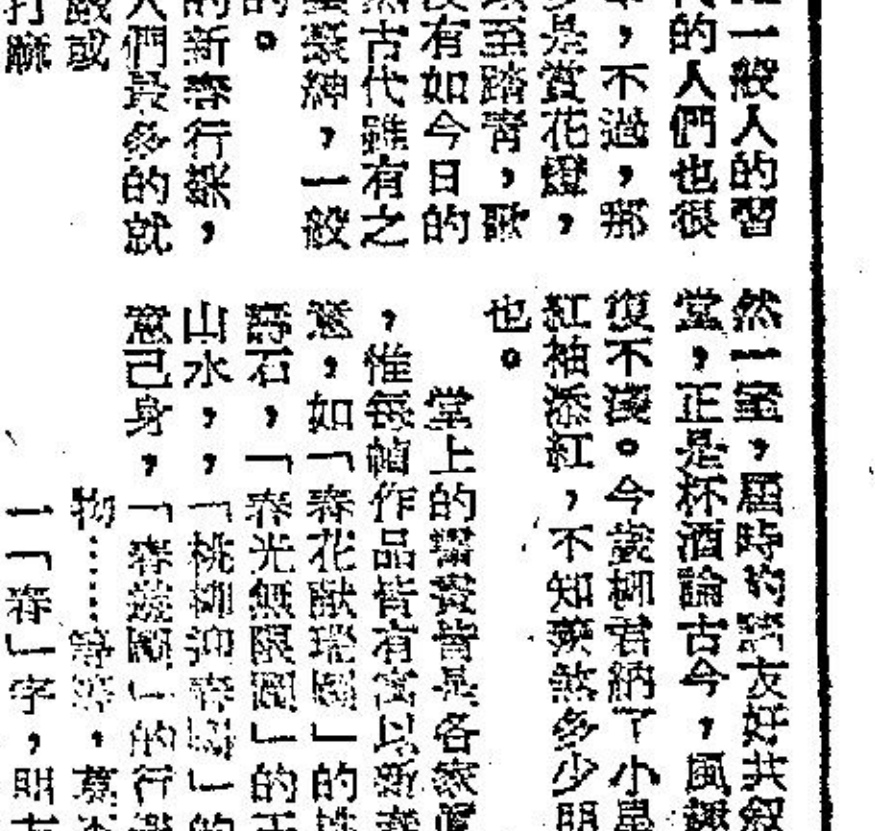 一般人的習
代的人們也很
，不過，那
多是賞花燈，
至踏青，歌
沒有如今日的
然古代雖有之
紳，一般
的。
的新春行綵，
人們最多的就
戲或
打麻
然一室，屆時約諸友好共叙
堂，正是杯酒論古今，風趣
復不淺。今歲柳君納了小星
紅袖添紅，不知羨煞多少朋
也。
堂上的書畫皆是各家
，惟每幀作品皆有寓以新春
意，如「春花獻瑞圖」的
壽石，「春光無限圖」的
山水，，「桃柳迎春圖」的
意己身，「春遊圖」的行
物……等等，
一「春」字，明